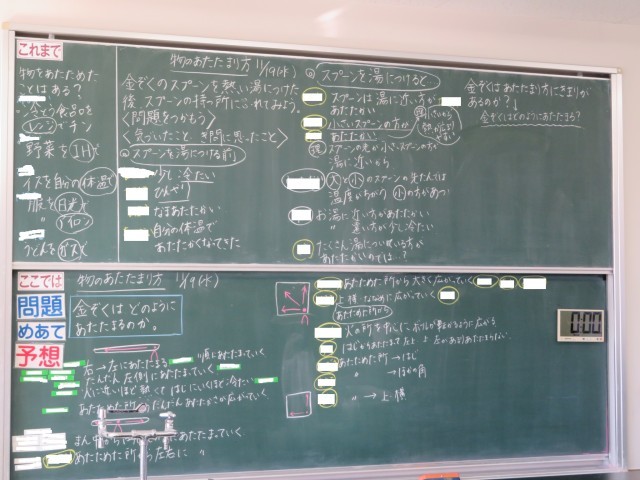 これまで
物をあたためた
ことはある?
冷とう食品を
レンジでチン
野菜をIHで
イスを自分の体温で
服を日光
アイロン
うどんをガスで
物のあたたまり方 11/19(水)
金ぞくのスプーンを熱い湯につけた
後、スプーンの持つ所にふれてみよう。
〈問題をつかもう〉
〈気づいたこと、ぎ問に思ったこと〉
スプーンを湯につける前
少し冷たい
ひんやり
なまあたたかい
自分の体温で
あたたかくなってきた
スプーンを湯につけると
スプーンは湯に近い方が
あたたかい
小さいスプーンの方が
あたたかい
スプーンの先が小さいスプーンの方が
湯に近いから
大と小のスプーンの先たんでは
温度がちがう 小の方があつい
お湯に近い方があたたかい
〃 遠い方が少し冷たい
たくさん湯についている方が
あたたかいのでは…?
金ぞくはあたたまり方にきまりが
あるのか?
金ぞくはどのようにあたたまる?
ここでは
物のあたたまり方 11/19(水)
問題
金ぞくは どのように
あたたまるのか。
めあて
予想
右→左にあたたまる
順にあたたまっていく
だんだん 左側にあたたまっていく
火に近いほど熱くて はしにいくほど冷たい
あたためた所からだんだんあたたかさが広がっていく
あたたまっていく
あたためた所から左右に 〃
あたためた所から 大きく広がっていく
上・横・ななめに広がっていく
あたためた所から
火の所を中心に
広がる
あたためた所→はし
〃 →ほかの角
〃 →上・横
0:00